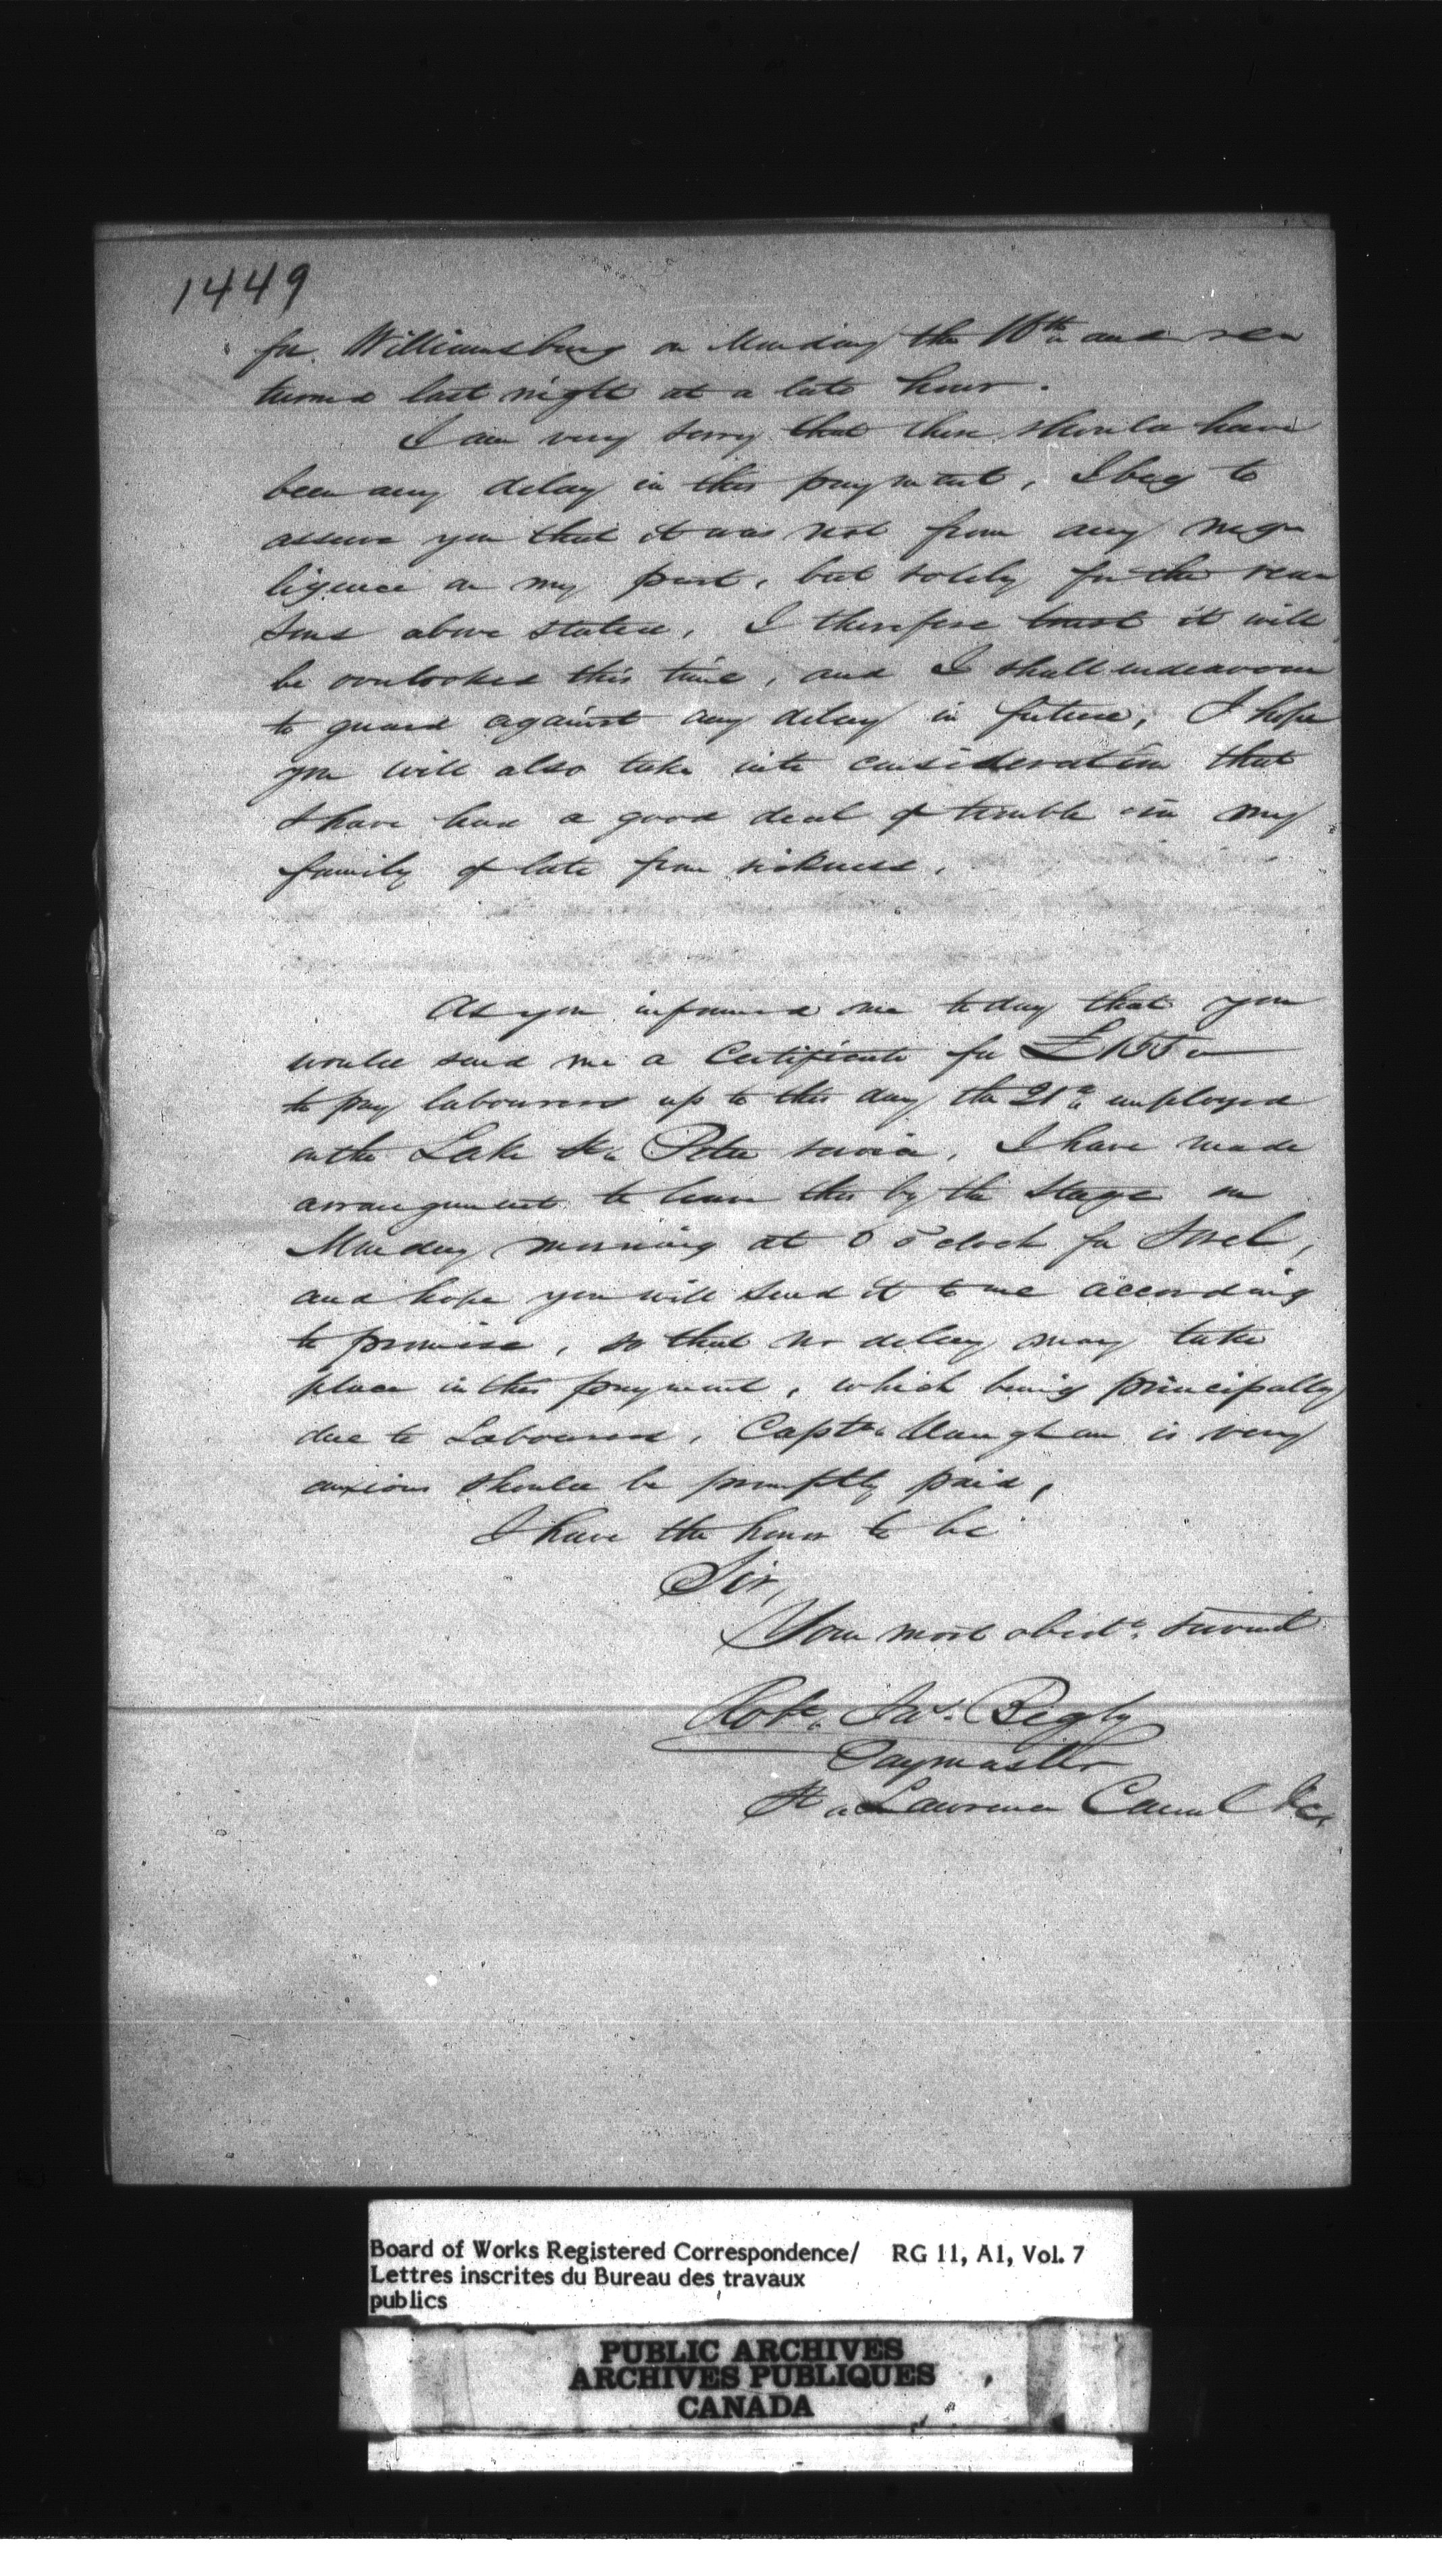 1449
for Williamsburg on Monday the 16th and re=
turned last night at a late hour.
I am very sorry that there should have
been any delay in this payment, I beg to
assure you that it was not from any neg=
ligence on my part, but solely for the rea=
sons above stated, I therefore trust it will
be overlooked this time, and I shall endeavour
to guard against any delay in future, I hope
you will also take into consideration that
I have had a good deal of trouble in my
family of late from sickness,
As you informed me to day that you
would send me a Certificate for
to pay labourers up to this day the 21st employed
on the Lake St. Peter service, I have made
arrangement to leave this by the Stage on
Monday morning at o'clock for Sorel,
and hope you will send it to me according
to promise, so that no delay may take
place in this payment, which being principally
due to Labourers, Captn. Vaughan is very
anxious should be promptly paid,
I have the honor to be
Sir,
Your most obedt. servant
Robt. Jas. Begly
Paymaster
St. Lawrence Canal &c.
Board of Works Registered Correspondence/ RG 11, A1, Vol. 7
Lettres inscrites du Bureau des travaux
publics
PUBLIC ARCHIVES
ARCHIVES PUBLIQUES
CANADA